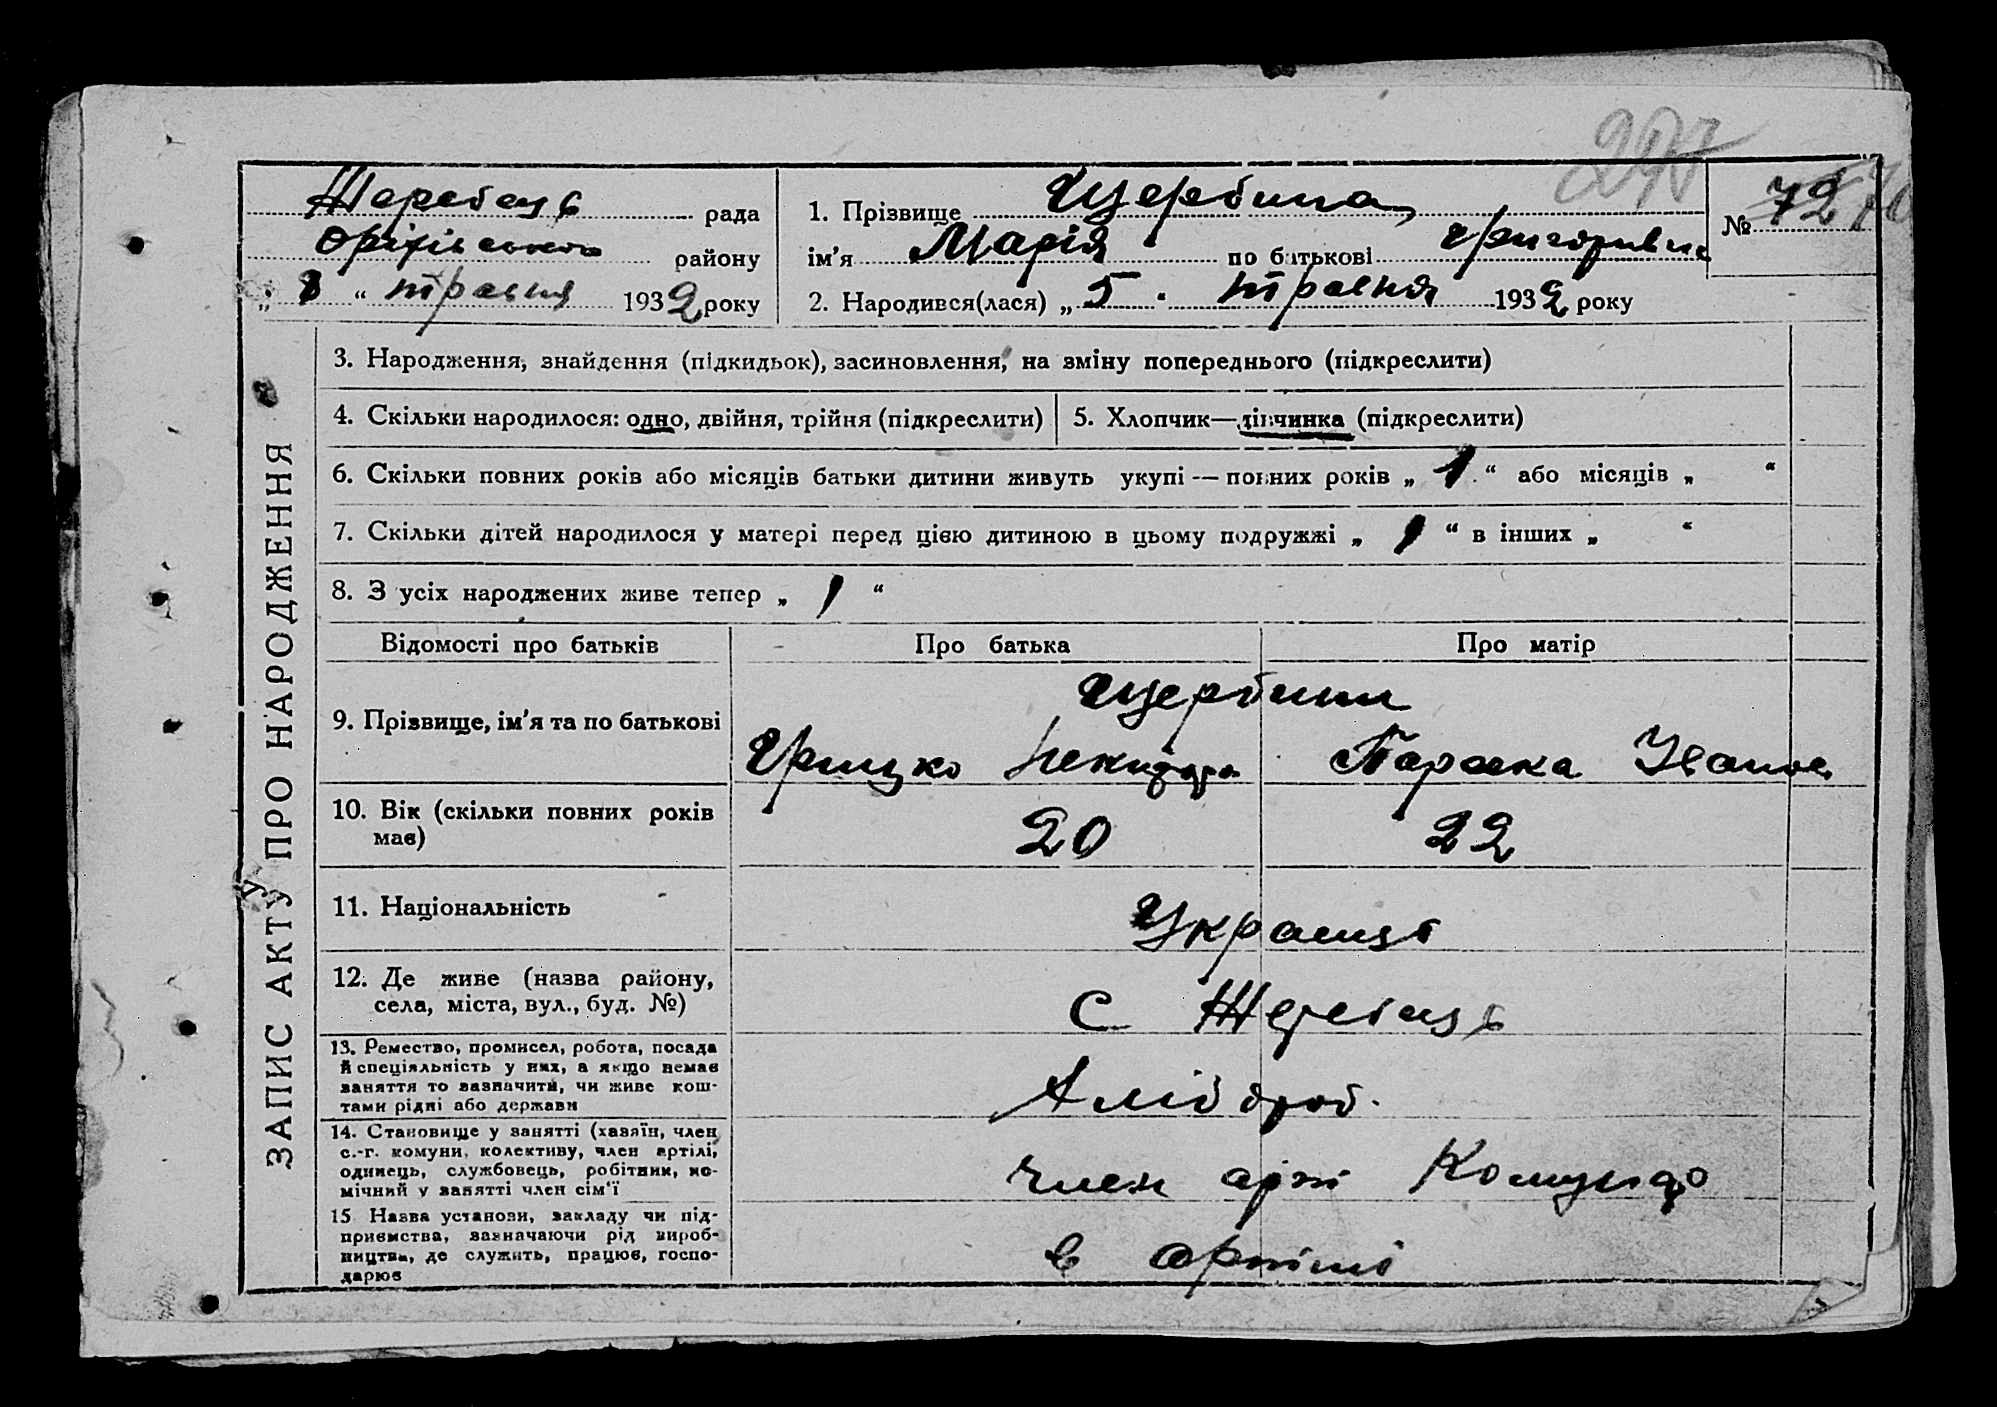 297
Жеребець рада
Оріхівського району
„ 8 “ травня 1932 року
1. Прізвище Щербина
ім'я Марія по батькові Григоривна
2. Народився(лася) „ 5 . травня 1932 року
№ 72 70
ЗАПИС АКТУ ПРО НАРОДЖЕННЯ
3. Народження, знайдення (підкидьок), засиновлення, на зміну попереднього (підкреслити)
4. Скільки народилося: одно, двійня, трійня (підкреслити)
5. Хлопчик—дівчинка (підкреслити)
6. Скільки повних років або місяців батьки дитини живуть укупі — повних років „ 1 “ або місяців „ “
7. Скільки дітей народилося у матері перед цією дитиною в цьому подружжі „ “ в інших „ “
8. З усіх народжених живе тепер „ 1 “
Відомості про батьків
Про батька
Про матір
9. Прізвище, ім'я та по батькові
Щербини
Грицко
Параска Іванов.
10. Вік (скільки повних років
має)
20
22
11. Національність
Украинці
12. Де живе (назва району,
села, міста, вул., буд. №)
С Жеребець
13. Ремество, промисел, робота, посада
й спеціяльність у них, а якщо немає
заняття то зазначити, чи живе кош-
тами рідні або держави
Хлібороб.
14. Становище у занятті (хазяїн, член
с.-г. комуни, колективу, член артілі,
одинець, службовець, робітник, по-
мічний у занятті член сім'ї
член арт
15 Назва установи, закладу чи під-
приємства, зазначаючи рід вироб-
ництва, де служить, працює, госпо-
дарює
в артілі